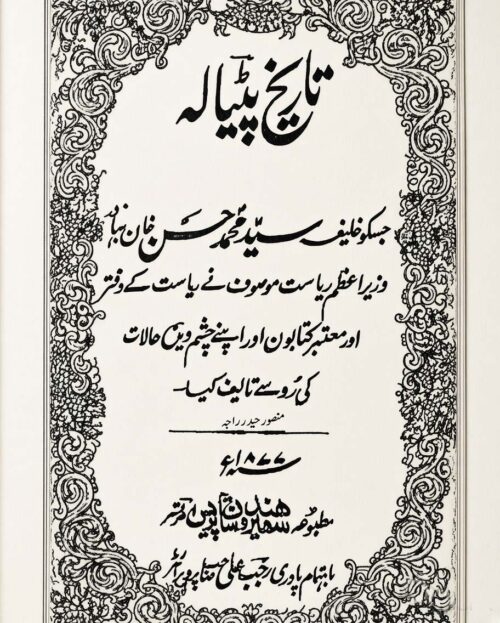 تاریخ پٹیالہ
جسکو خلیفہ سید محمد حسن خان بہادر
وزیر اعظم ریاست موصوف نے ریاست کے دفتر
اور معتبر کتابون اور اپنے چشم دید حالات
کی رو سے تالیف کیا۔
منصور حیدر راجہ
۱۸۷۷ء
مطبوعہ سفیر ہندوستان پریس امرتسر
باہتمام پادری رجب علی صاحب پروپرائٹر